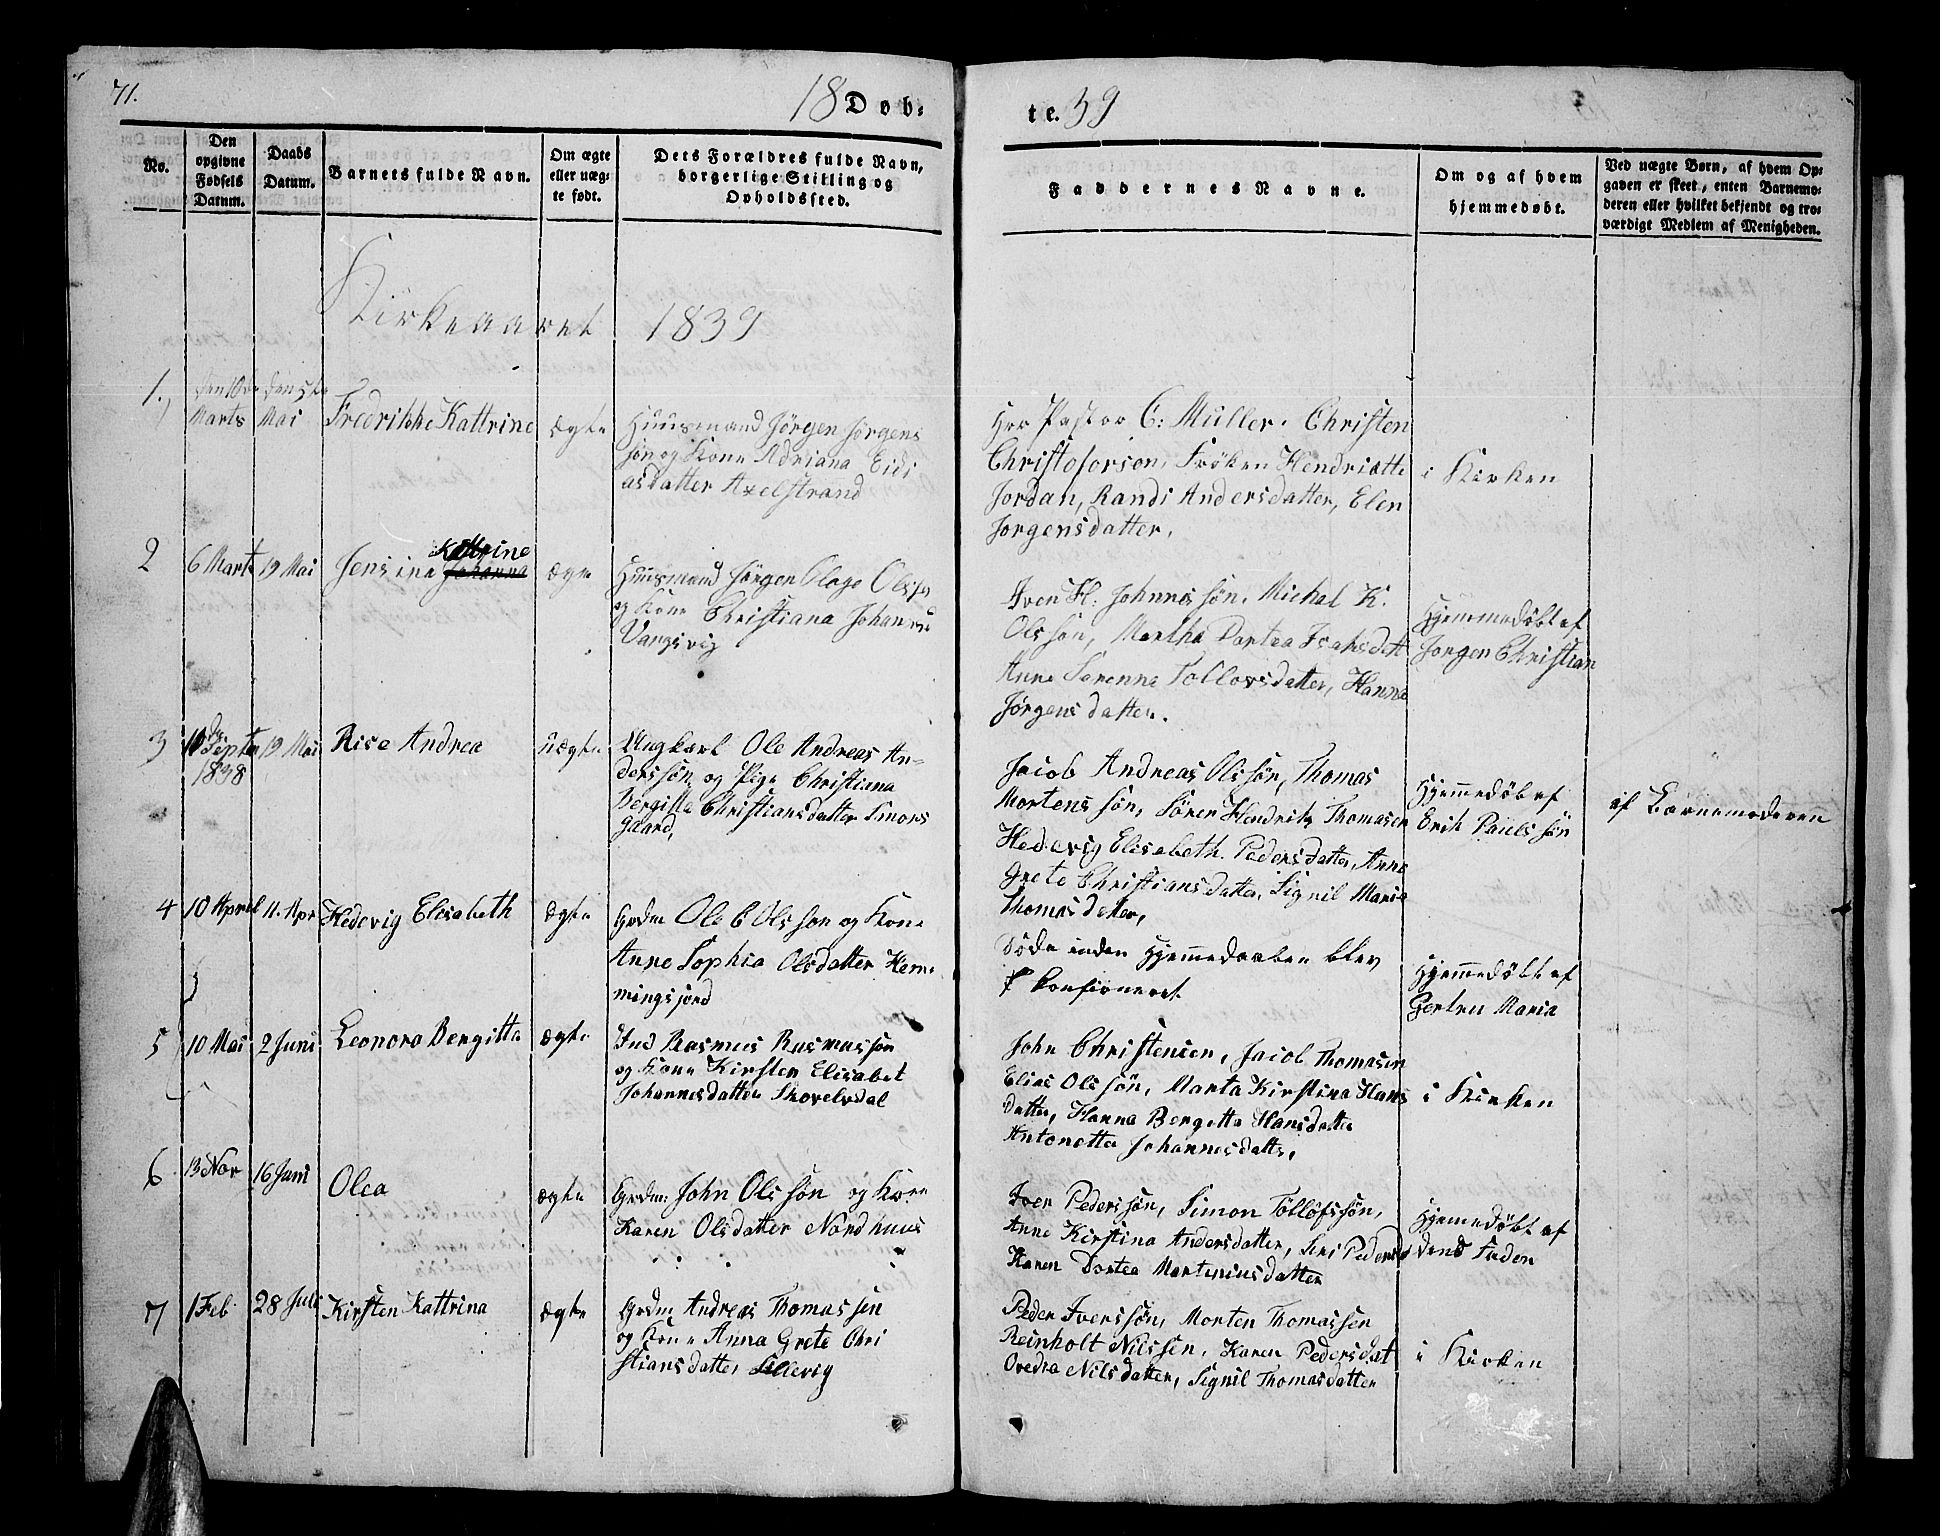 71.
18 Døb-
te. 39
No.
Den
opgivne
Fødsels
Datum.
Daabs
Datum.
Barnets fulde Navn.
Om ægte
eller uæg-
te født.
Dets Forældres fulde Navn,
borgerlige Stilling og
Opholdssted.
Faddernes Navne.
Om og af hvem
hjemmedøbt.
Ved uægte Børn, af hvem Op-
gaven er skeet, enten Barnemo-
deren eller hvilket bekjendt og tro-
værdigt Medlem af Menigheden.
Kirkeaaret 1839
1.
den 10de
Marts
den 5te
Mai
Fredrikke Kattrine
Ægte
Huusmand Jörgen Jörgens
sön og Kone Adriana Eidi
asdatter Axelstrand
Her Pastor C: Müller. Christen
Christofersen, Fröken Hendriette
Jordan, Randi Andersdatter, Elen
Jorgensdatter.
i Kirken
2
6 Marts
19 Mai
Jensina Johanna
Kattrine
Ægte
Huusmand Jörgen Olage Olsen
og Kone Christiana Johan
Vangsvig
Iver H. Johnnessön, Michal K.
Olssön, Martha Dortea Isaksdatt
Anne Sorenna Tollovsdatter, Hanna
Jörgensdatter.
Hjemmedöbt af
Jorgen Christian
3
10 de
Septbr
1838
19 Mai
Rise Andrea
Uægte
Ungkarl Ole Andreas An-
derssön og Pige Christiana
Bergitte Christiansdatter Simons
gaard,
Jacob Andreas Olssön, Thomas
Mortenssön, Sören Hendrik Thomasen
Hedevig Elisabeth Pedersdatter, Anne
Grete Christiansdatter, Signil Maria
Thomasdatter,
Hjemmedöb af
Erik Paulssön
af Barnemoderen
4
10 April
11. Apr
Hedevig Elisabeth
Ægte
Grdm Ole C Olsson og Kone
Anne Sophia Olsdatter Hem-
mingsjord
Döde inden Hjemmedaaben blev
konfirmeret.
Hjemmedöbt af
Gertru Maria
5
10 Mai
2 Juni
Leonora Bergitta
Ægte
Ind Rasmus Rasmussön
og Kone Kirsten Elisabet
Johannesdatter Skovelvdal
John Christensen, Jacob Thomasen
Elias Olssön, Marta Kirstina Hans
datter, Hanna Bergetta Hansdatter
Antonetta Johannesdatter,
i Kirken
6
13 Nov
16 Juni
Olea
Ægte
Grdm: John Olssön og Kone
Karen Olsdatter Nordhuus
Iver Pederssön, Simon Töllöfssön,
Anne Kirstina Andersdatter, Seri Pedersd
Karen Dortea Martiniusdatter
Hjemmedöbt af
dens Fader
7
1 Feb.
28 Juli
Kirsten Kattrina
Ægte
Grdm Andreas Thomassen
og Kone Anna Grete Chri
stiansdatter Lillevig
Peder Iverssön, Morten Thomassen
Reinholt Nilssen, Karen Pedersdat
Ovedia Nilsdatter, Signil Thomasdatter
i Kirken